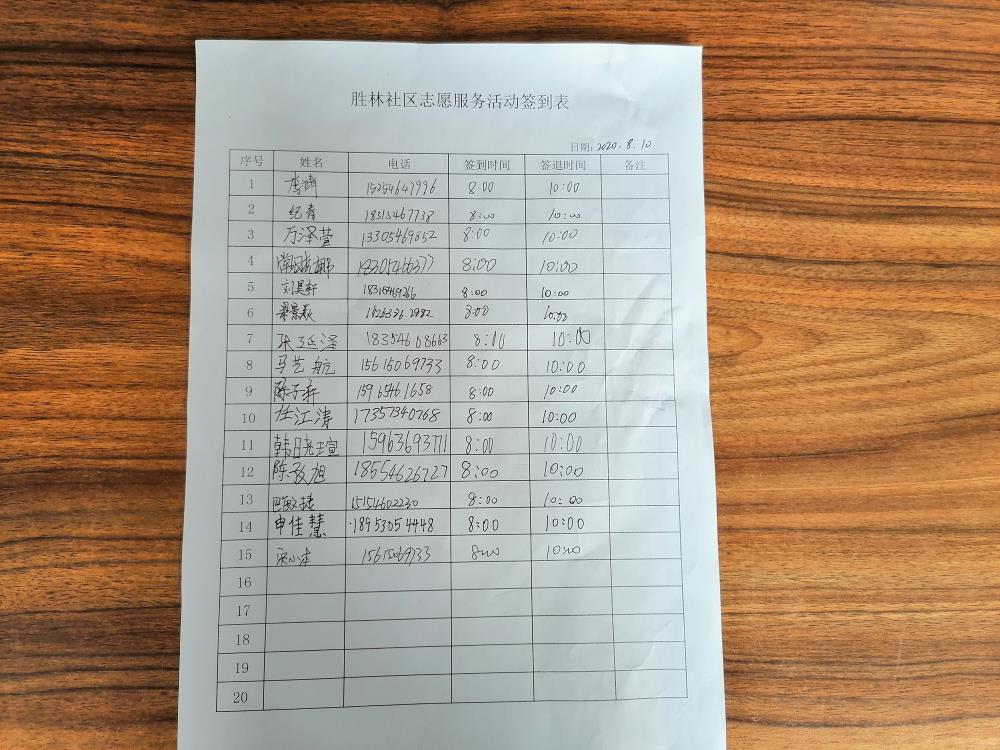 胜林社区志愿服务活动签到表
日期: 2020.8.10
序号 姓名 电话 签到时间 签退时间 备注
1 15254641996 8:00 10:00
2 纪青 18315467738 8:00 10:00
3 万泽萱 13305469852 8:00 10:00
4 8:00 10:00
5 刘昊轩 8:00 10:00
6 梁景焱 8:00 10:00
7 张延泽 18354608663 8:00 10:00
8 马艺航 15615069733 8:00 10:00
9 陈子齐 15965461658 8:00 10:00
10 任江涛 17357340768 8:00 10:00
11 韩晓瑄 15963693771 8:00 10:00
12 陈孜旭 18554626727 8:00 10:00
13 巴敏捷 15154602230 8:00 10:00
14 申佳慧 18953054448 8:00 10:00
15 15615069733 8:00 10:00
16
17
18
19
20